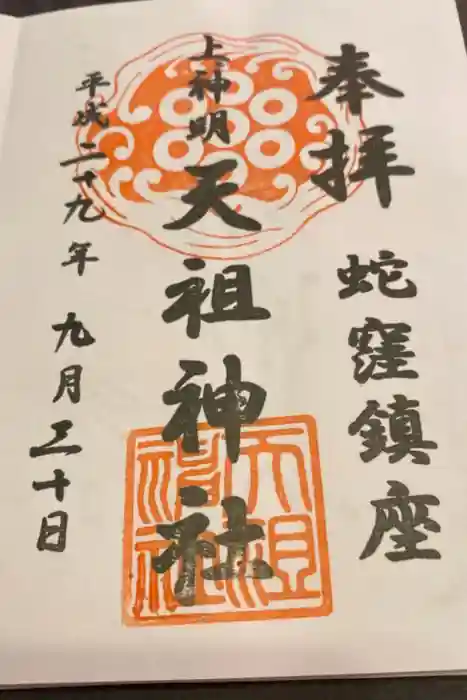 奉拝
蛇窪鎮座
上神明
天祖神社
平成二十九年 九月三十日
天祖神社